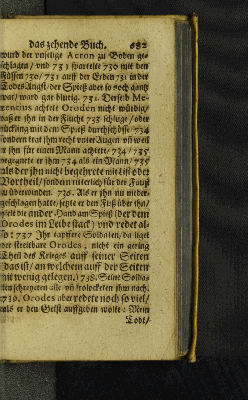 das zehende Buch. 682
wurd der unselige Acron zu Boden ge-
schlagen/ und 731 spartelte 730 mit den
Füssen 730/731 auff der Erden 731 in der
Todes Angst/ der Spieß aber so noch gantz
war/ ward gar blutig. 731. Derselb Me-
zentius achtete Oroden nicht würdig/
daß er ihn in der Flucht 733 schluge/ oder
rückling mit dem Spieß durchschösse 734
sondern trat ihm recht unter Augen uñ weil
er ihn für einen Mann achtete/ 734/735
begegnete er ihm 734 als ein Mann/ 735
als der ihn nicht begehrete mit List oder
Vortheil/ sondern ritterlich für der Faust
zu überwinden. 736. Als er ihn nu nieder-
geschlagen hatte/ setzte er den Fuß über ihn/
hielt die ander Hand am Spieß (der dem
Orodes im Leibe stack) und redet al-
so: 737 Ihr tapffere Soldaten/ da liget
der streitbare Orodes, nicht ein gering
Theil des Krieges auff seiner Seiten
(das ist/ an welchem auff der Seiten
nit wenig gelegen.) 738. Seine Solda-
ten schreyeten alle uñ frolocketen ihm nach.
739. Orodes aber redete noch so viel/
als er den Geist auffgeben wolte: Mein
Todt/